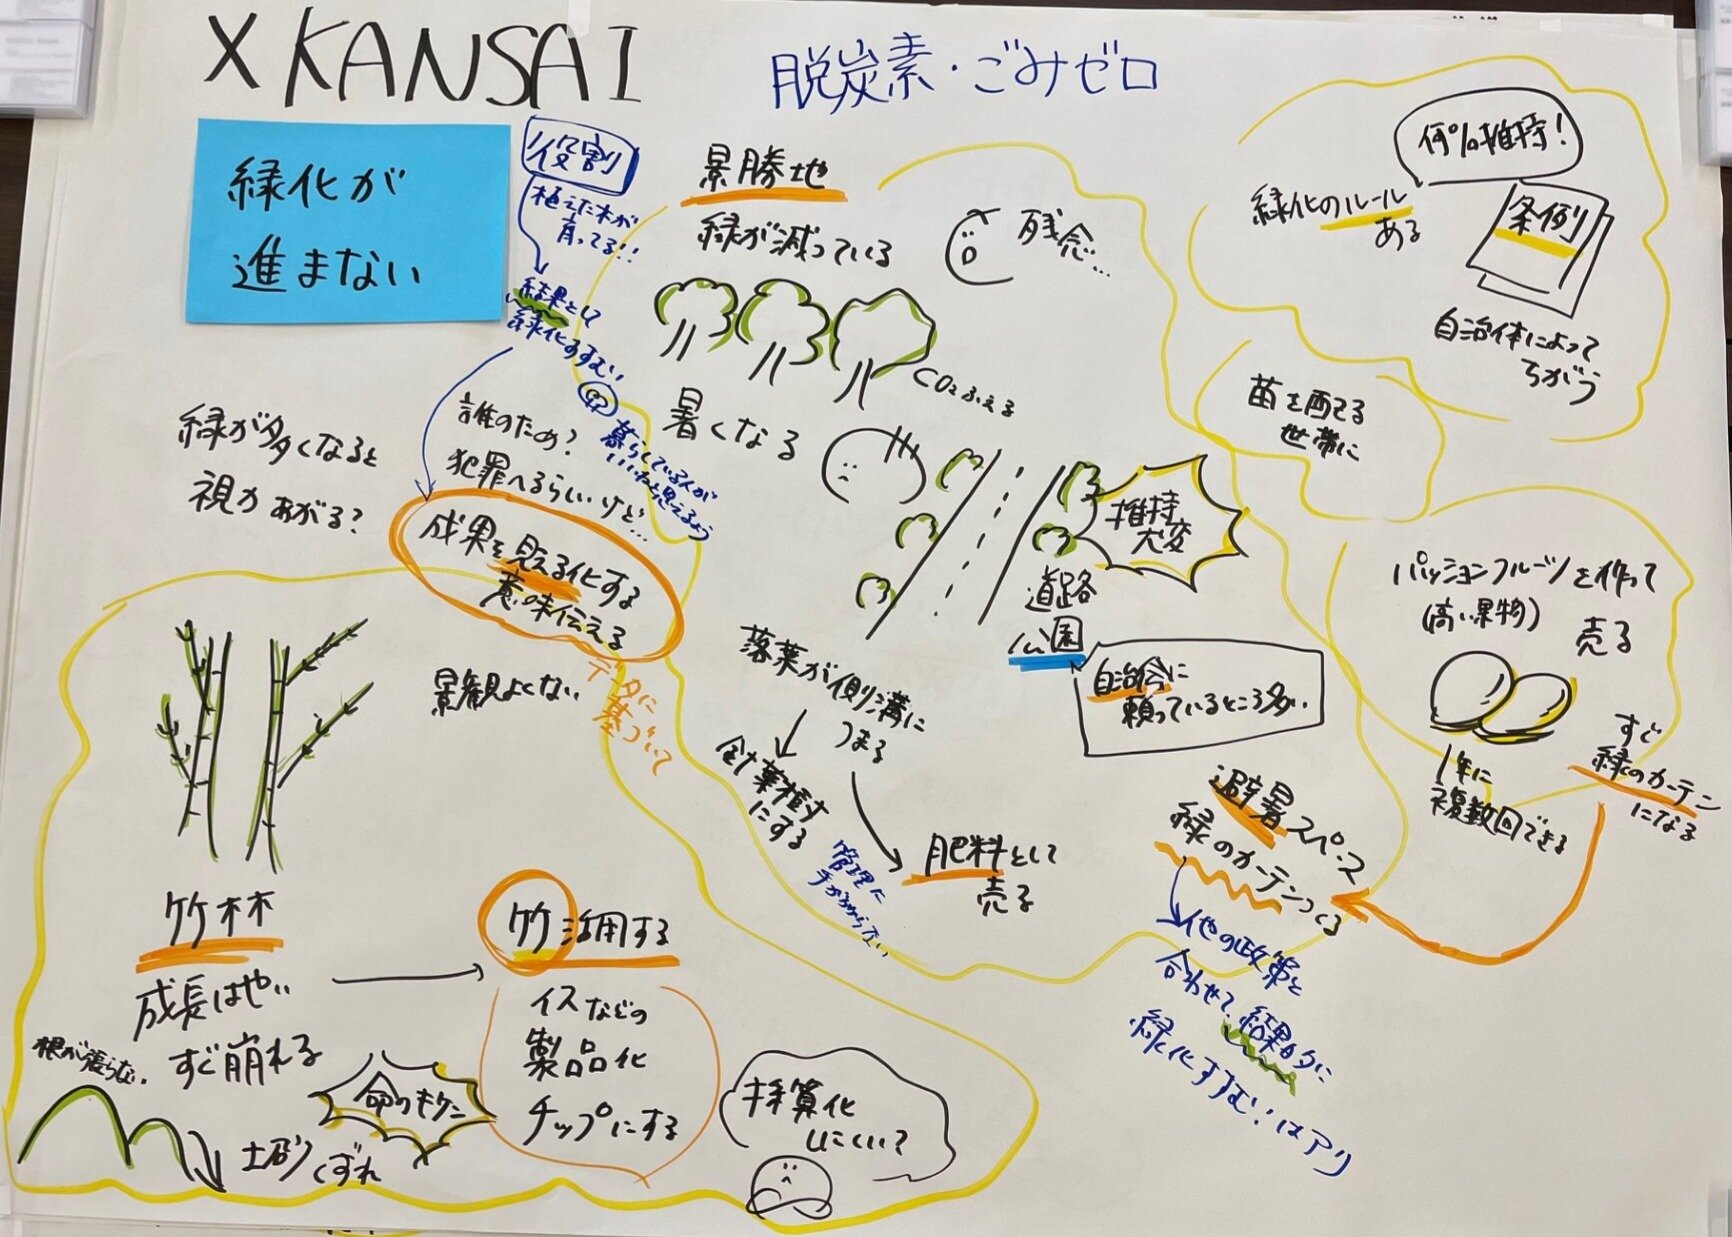 X KANSAI
脱炭素・ごみゼロ
緑化が
進まない
役割
植えた木が
育ってる!!
結果として
緑化もすすむ
景勝地
緑が減っている
残念…
CO2ふえる
何%維持!
緑化のルール
ある
条例
自治体によって
ちがう
苗を配る
世帯に
緑が多くなると
視力あがる?
誰のため?
犯罪へるらしいけど…
暮らしている人が
いいねと思えるよう
成果を見える化する
意味伝える
データに
基づいて
暑くなる
維持
大変
道路
公園
自治会に
頼っているところ多い
落葉が側溝に
つまる
針葉樹
にする
管理に
手がかからない
肥料として
売る
パッションフルーツを作って
(高い果物)
売る
1年に
複数回できる
すぐ
緑のカーテン
になる
避暑スペース
緑のカーテンつくる
他の政策と
合わせて、結果的に
緑化すすむ!はアリ
景観よくない
竹林
成長はやい
すぐ崩れる
根が張らない
土砂くずれ
命のキケン
竹活用する
イスなどの
製品化
チップにする
採算化
しにくい?